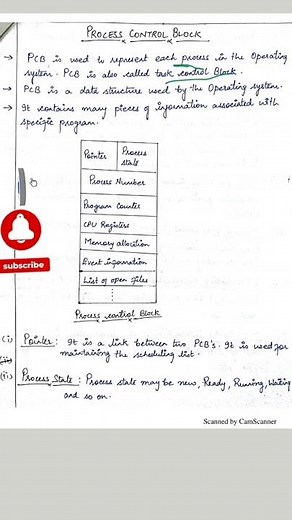 PROCESS CONTROL BLOCK
→ PCB is used to represent each process in the Operating
system. PCB is also called task control Block.
→ PCB is a data structure used by the Operating system.
→ It contains many pieces of information associated with
specific program.
Pointer Process
state
Process Number
Program Counter
CPU Registers
Memory allocation
Event information
List of open files
⋮
Process control Block
subscribe
(i) Pointer: It is a link between two PCB's. It is used for
maintaining the scheduling list.
(ii) Process State: Process state may be new, Ready, Running, Waiting
and so on.
Scanned by CamScanner